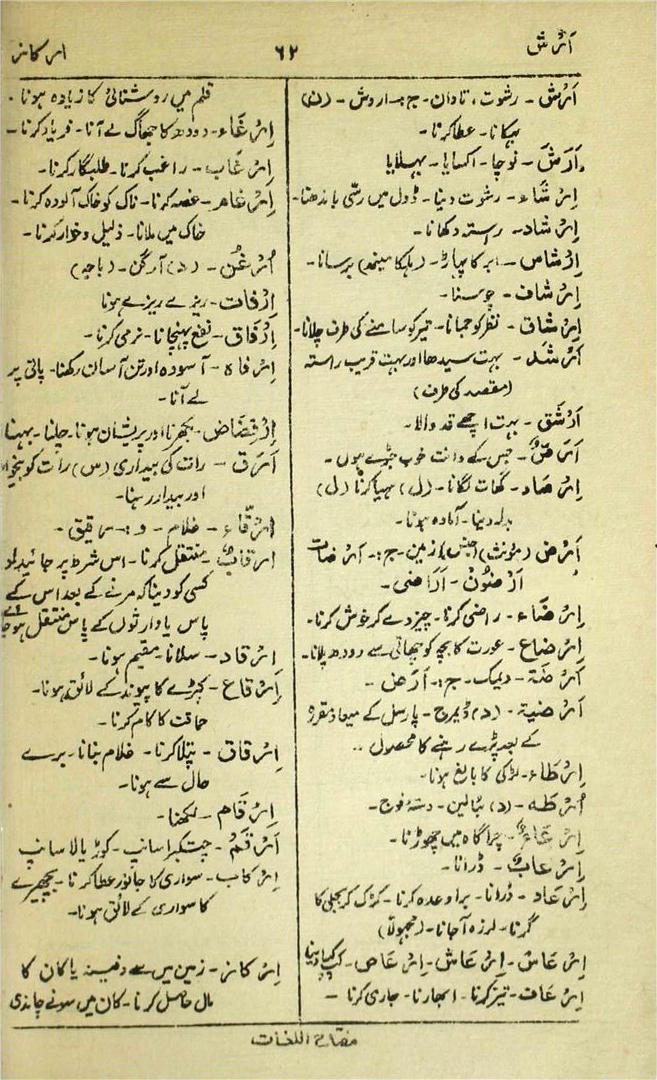 اَرْش
۶۲
ارکاز
اَرْش - رشوت، تاوان - ج: اروش - (ن)
بہکانا - عطا کرنا -
اَرَشَ - نوچا - اکسایا - بہلایا
اِرْشَاء - رشوت دینا - ڈول میں رسّی باندھنا -
اِرْشاد - راستہ دکھانا -
اِرْشاش - ابر کا پہاڑ - (ہلکا مینھ) برسانا -
اِرْشاف - چوسنا -
اِرْشاق - نظر کو جمانا - تیر کو سامنے کی طرف چلانا -
اَرْشَد - بہت سیدھا اور بہت قریب راستہ
(مقصد کی طرف)
اَرْشَق - بہت اچھے قد والا -
جس کے دانت خوب جڑے ہوں -
اِرْصَاد - گھات لگانا - (ل) مہیا کرنا (ل)
بدلہ دینا - آمادہ ہونا -
اَرْض (مونث) زمین - ج: - اَرْضَات
اَرْضُوْنَ - اَرَاضِی -
اِرْضَاء - راضی کرنا - چیز دے کر خوش کرنا -
اِرْضاع - عورت کا بچہ کو چھاتی سے دودھ پلانا -
اَرْضَة - دیمک - ج: - اَرَض -
اَرْضِیة - (د) ڈیمرج - پارسل کے میعاد مقررہ
کے بعد پڑے رہنے کا محصول ..
اِرْطَاء - لڑکی کا بالغ ہونا -
اُرْطَه - (د) بٹالین - دستۂ فوج -
اِرْعَاء - چراگاہ میں چھوڑنا -
اِرْعَاب - ڈرانا -
اِرْعَاد - ڈرانا - برا وعدہ کرنا - کڑک کر بجلی کا
گرنا - لرزہ آجانا - (مجہولا)
اِرْعَاس - اِرْعَاش - اِرْعَاص - کپکپا دینا
اِرْعَاف - تیز کرنا - ابھارنا - جاری کرنا -
قلم میں روشنائی کا زیادہ ہونا -
اِرْغَاء - دودھ کا جھاگ لے آنا - فریاد کرنا -
اِرْغَاب - راغب کرنا - طلبگار کرنا -
اِرْغَام - غصہ کرنا - ناک کو خاک آلودہ کرنا -
خاک میں ملانا - ذلیل و خوار کرنا -
اُرْغُن - (د) آرگن - (باجہ)
اِرْفات - ریزے ریزے ہونا
اِرْفَاق - نفع پہنچانا - نرمی کرنا -
اِرْفَاہ - آسودہ اور تن آسان رکھنا - پانی پر
لے آنا -
اِرْفِضَاض - بکھرنا اور پریشان ہونا - چلنا - بہنا
اَرَق - رات کی بیداری (س) رات کو
اور بیدار رہنا -
اَرِقَّاء - غلام - و: - رقیق -
اِرْقَاب - منتقل کرنا - اس شرط پر جائیداد
کسی کو دینا کہ مرنے کے بعد اس کے
پاس یا وارثوں کے پاس منتقل ہو جائے
اِرْقَاد - سلانا - مقیم ہونا -
اِرْقَاع - کپڑے کا پیوند کے لائق ہونا -
حماقت کا کام کرنا -
اِرْقَاق - پتلا کرنا - غلام بنانا - برے
حال سے ہونا -
اِرْقَام - لکھنا -
اَرْقَم - چتکبرا سانپ - کوڑیالا سانپ
اِرْکاب - سواری کا جانور عطا کرنا - بچھیرے
کا سواری کے لائق ہونا -
اِرْکَاز - زمین میں سے دفینہ یا کان کا
مال حاصل کرنا - کان میں سونے چاندی
مفتاح اللغات